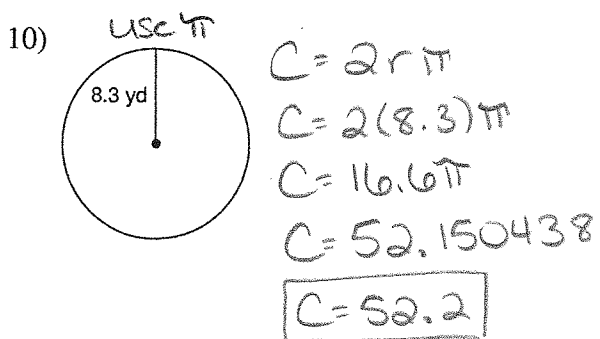 10) use π
8.3 yd
C = 2rπ
C = 2(8.3)π
C = 16.6π
C = 52.150438
C = 52.2